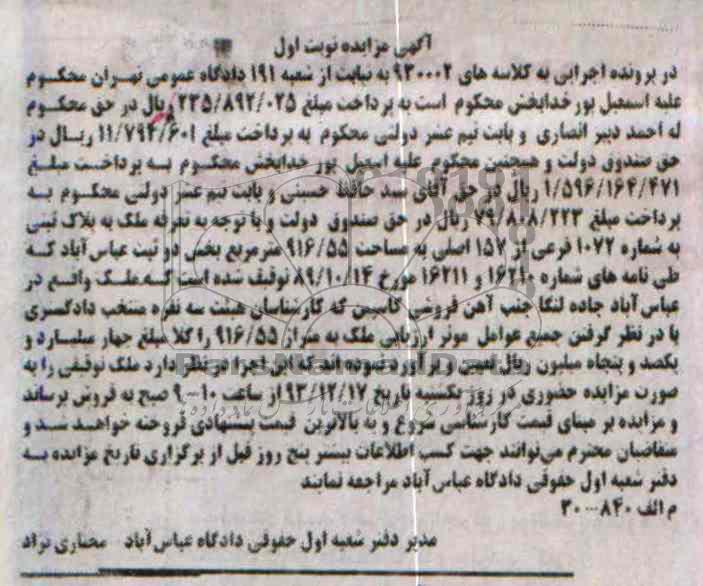 آگهی مزایده نوبت اول
در پرونده اجرایی به کلاسه های ۹۳۰۰۰۲ به نیابت از شعبه ۱۹۱ دادگاه عمومی تهران محکوم
علیه اسمعیل پور خدابخش محکوم است به پرداخت مبلغ ۲۳۵/۸۹۲/۰۲۵ ریال در حق محکوم
له احمد دبیر انصاری و بابت نیم عشر دولتی محکوم به پرداخت مبلغ ۱۱/۷۹۴/۶۰۱ ریال در
حق صندوق دولت و همچنین محکوم علیه اسمعیل پور خدابخش محکوم به پرداخت مبلغ
۱/۵۹۶/۱۶۴/۴۷۱ ریال در حق آقای سید حافظ حسینی و بابت نیم عشر دولتی محکوم به
پرداخت مبلغ ۷۹/۸۰۸/۲۲۳ ریال در حق صندوق دولت و با توجه به تعرفه ملک به پلاک ثبتی
به شماره ۱۰۷۲ فرعی از ۱۵۷ اصلی به مساحت ۹۱۶/۵۵ مترمربع بخش دو ثبت عباس آباد که
طی نامه های شماره ۱۶۲۱۰ و ۱۶۲۱۱ مورخ ۸۹/۱۰/۱۴ توقیف شده است که ملک واقع در
عباس آباد جاده لنگا جنب آهن فروشی کاسپین که کارشناسان هیئت سه نفره منتخب دادگستری
با در نظر گرفتن جمیع عوامل موثر ارزیابی ملک به متراژ ۹۱۶/۵۵ را کلا مبلغ چهار میلیارد و
یکصد و پنجاه میلیون ریال تعیین و برآورد نموده اند که این اجرا در نظر دارد ملک توقیفی را به
صورت مزایده حضوری در روز یکشنبه تاریخ ۹۳/۱۲/۱۷ از ساعت ۱۰-۹ صبح به فروش برساند
و مزایده بر مبنای قیمت کارشناسی شروع و به بالاترین قیمت پیشنهادی فروخته خواهد شد و
متقاضیان محترم می‌توانند جهت کسب اطلاعات بیشتر پنج روز قبل از برگزاری تاریخ مزایده به
دفتر شعبه اول حقوقی دادگاه عباس آباد مراجعه نمایند
م الف ۸۴۰-۳۰۰
مدیر دفتر شعبه اول حقوقی دادگاه عباس آباد مختاری نژاد
ParsNamadData